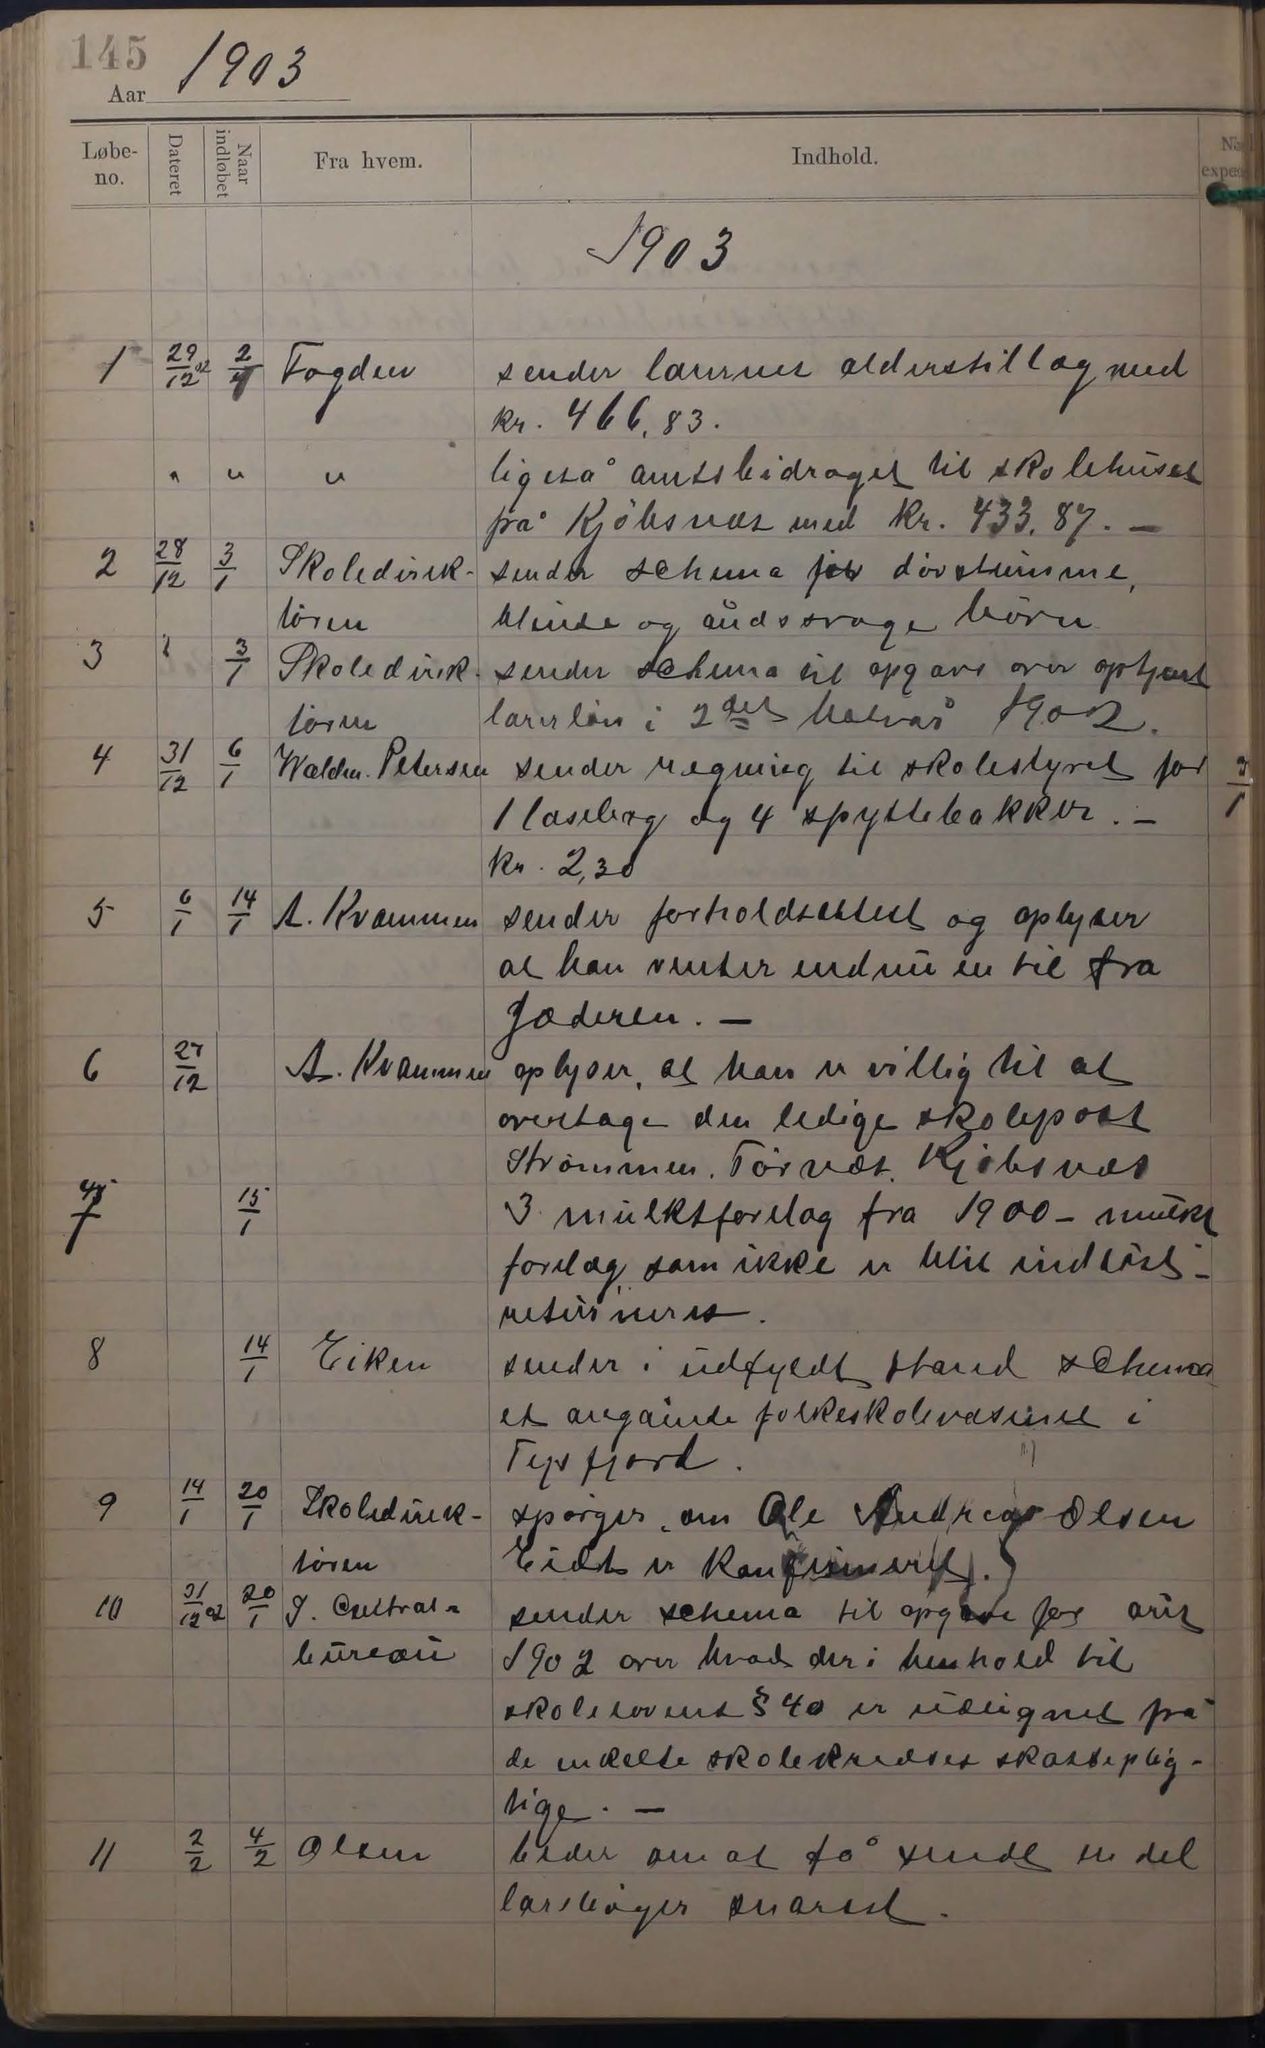 145
Aar 1903
Løbe-no. Dateret Naar indløbet Fra hvem. Indhold.
1903
1 29/12 02 2/1 Fogden sender lærernes alderstillæg med
kr. 466,83.
" " " ligeså amtsbidraget til skolehuset
på Kjöbsnæs med kr. 433,87. —
2 28/12 3/1 Skoledirek- sender schema for døvstumme,
tören blinde og åndssvage börn
3 " 3/1 Skoledirek- sender schema til opgave over optjent
tören lærerlön i 2det halvår 1902.
4 31/12 6/1 Waldm. Petersen sender regning til skolestyret for
1 and 4 spyttebakker. —
kr. 2,30
5 6/1 14/1 A. Kvammen sender forholdsattest og oplyser
at han venter endnu en til fra
Jæderen. —
6 27/12 A. Kvammen oplyser, at han er villig til at
overtage den ledige skolepost
Strömmen, Törnæs, Kjöbsnæs
7 15/1 3 mulktforelag fra 1900 – mulkt
forelæg som ikke er blit indlöst –
returneres.
8 14/1 Eiken sender i udfyldt stand schema
et angående folkeskolevæsenet i
Tysfjord.
9 14/1 20/1 Skoledirek- spörger, om Ole Andreas Olsen
tören Eidet er konfirmeret.
10 31/12 02 20/1 S. Centralbureau sender schema til opgave for året
1902 over hvad der i henhold til
skolelovens § 40 er udlignet på
de enkelte skolekredses skattepligtige. —
11 2/2 4/2 Olsen beder om at få sendt en del
læreböger snarest.